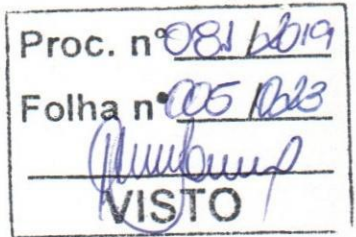 Proc. nº 081/2019
Folha nº 005
VISTO